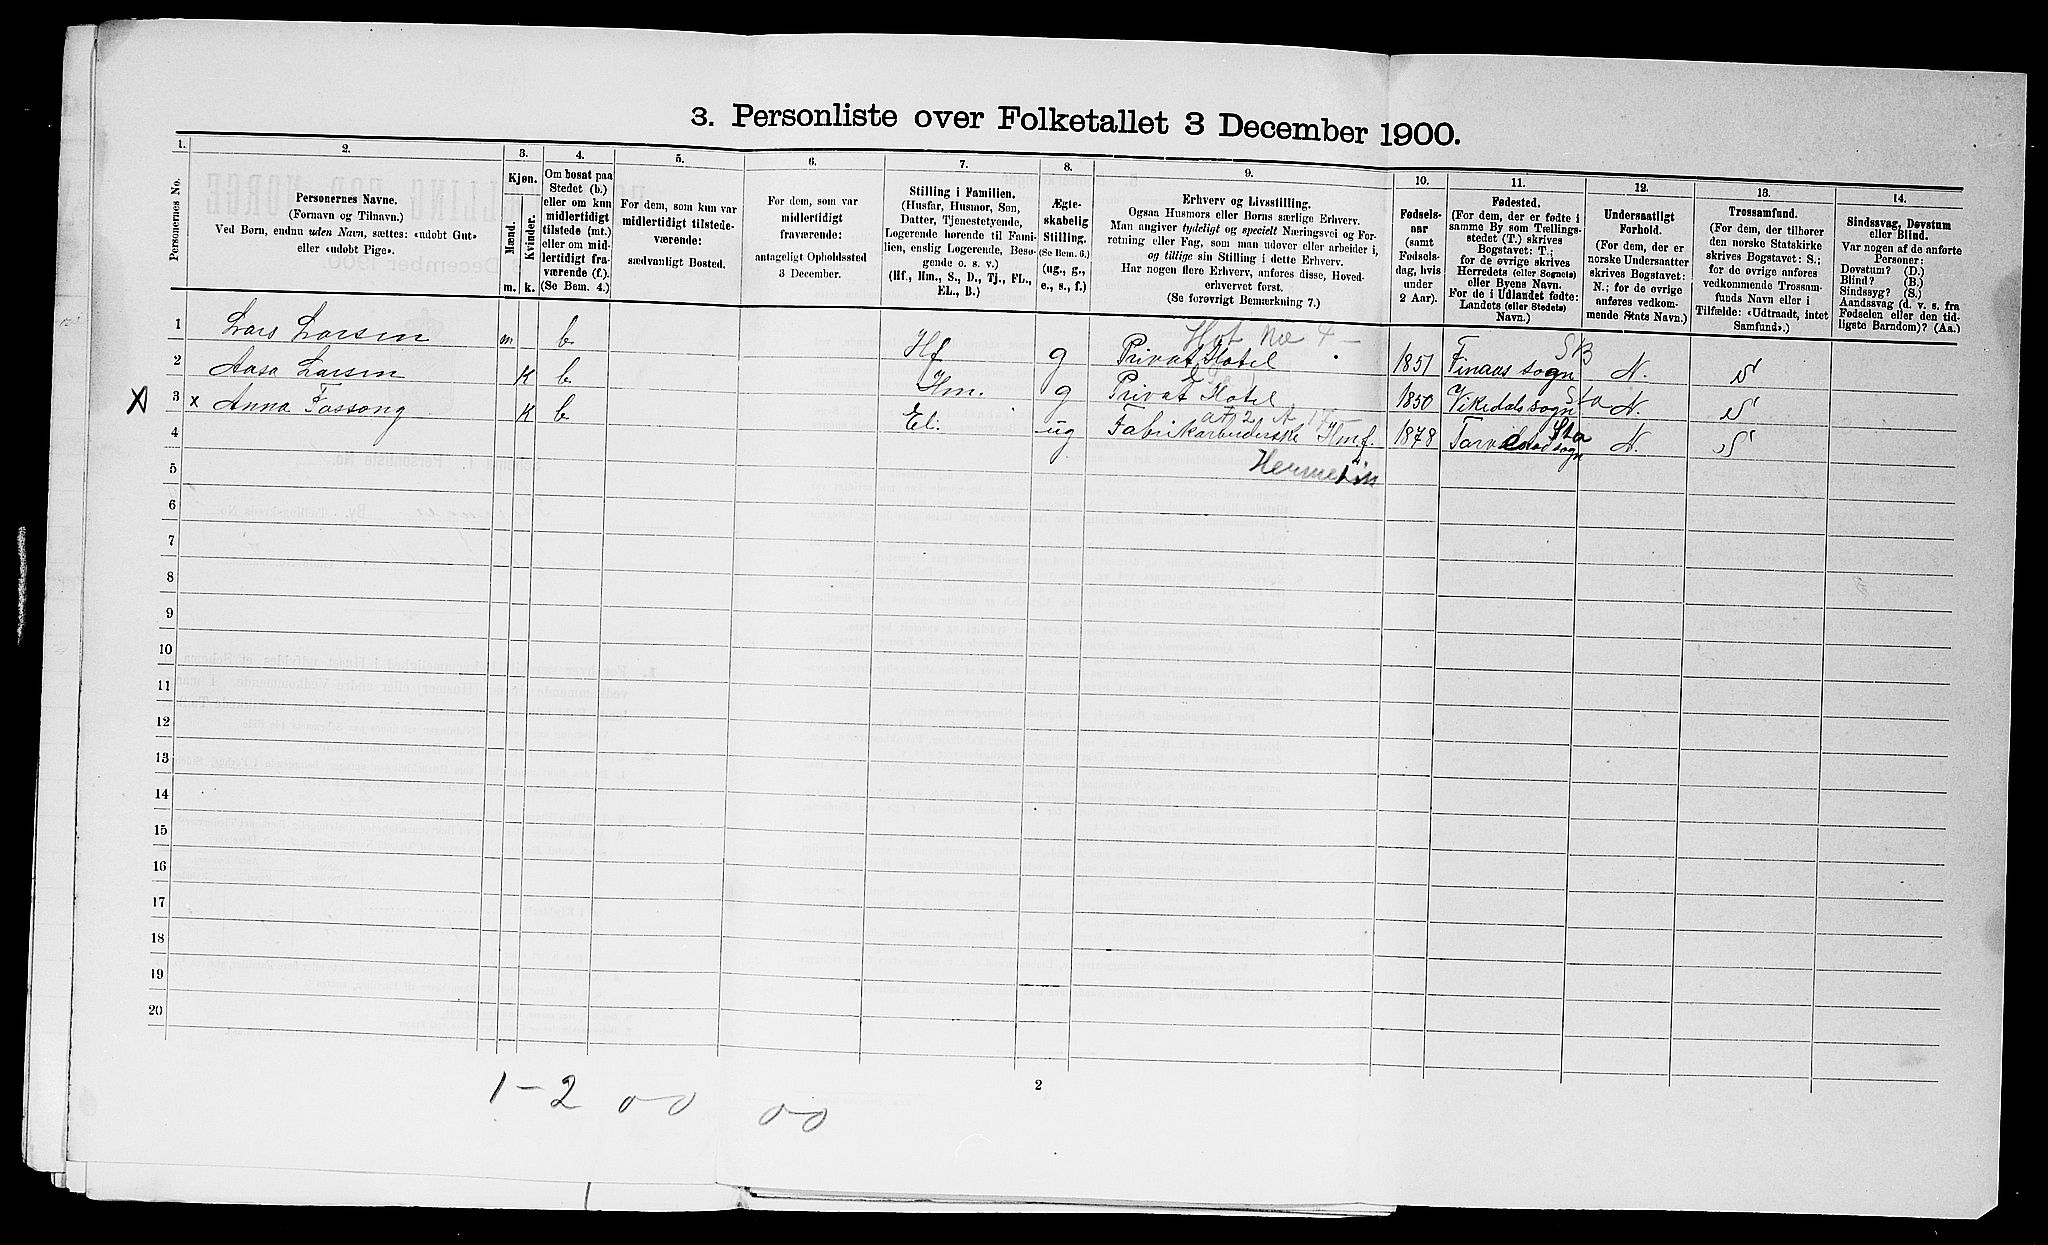 3. Personliste over Folketallet 3 December 1900.
1. 2. 3. 4. 5. 6. 7. 8. 9. 10. 11. 12. 13. 14.
Personernes No.
Personernes Navne.
(Fornavn og Tilnavn.)
Ved Børn, endnu uden Navn, sættes: «udøbt Gut»
eller «udøbt Pige».
Kjøn.
Mænd. Kvinder.
m. k.
Om bosat paa
Stedet (b.)
eller om kun
midlertidigt
tilstede (mt.)
eller om mid-
lertidigt fra-
værende (f.).
(Se Bem. 4.)
For dem, som kun var
midlertidigt tilstede-
værende:
sædvanligt Bosted.
For dem, som var
midlertidigt
fraværende:
antageligt Opholdssted
3 December.
Stilling i Familien.
(Husfar, Husmor, Søn,
Datter, Tjenestetyende,
Logerende hørende til Fami-
lien, enslig Logerende, Besø-
gende o. s. v.)
(Hf., Hm., S., D., Tj., FL.,
EL., B.)
Ægte-
skabelig
Stilling.
(Se Bem. 6.)
(ug., g.,
e., s., f.)
Erhverv og Livsstilling.
Ogsaa Husmors eller Børns særlige Erhverv.
Man angiver tydeligt og specielt Næringsvei og For-
retning eller Fag, som man udover eller arbeider i,
og tillige sin Stilling i dette Erhverv.
Har nogen flere Erhverv, anføres disse, Hoved-
erhvervet først.
(Se forøvrigt Bemærkning 7.)
Fødsels-
aar
(samt
Fødsels-
dag, hvis
under
2 Aar).
Fødested.
(For dem, der er fødte i
samme By som Tællings-
stedet (T.) skrives
Bogstavet: T.;
for de øvrige skrives
Herredets (eller Sognets)
eller Byens Navn.
For de i Udlandet fødte:
Landets (eller Stedets)
Navn.)
Undersaatligt
Forhold.
(For dem, der er
norske Undersaatter
skrives Bogstavet:
N.; for de øvrige
anføres vedkom-
mende Stats Navn.)
Trossamfund.
(For dem, der tilhører
den norske Statskirke
skrives Bogstavet: S.;
for de øvrige anføres
vedkommende Trossam-
funds Navn eller i
Tilfælde: «Udtraadt, intet
Samfund».)
Sindssvag, Døvstum
eller Blind.
Var nogen af de anførte
Personer:
Døvstum? (D.)
Blind? (B.)
Sindssyg? (S.)
Aandssvag (d. v. s. fra
Fødselen eller den tid-
ligste Barndom)? (Aa.)
1 Lars Larsen m b Hf g Privat Hotel 1851 Finaas sogn SB N. S
2 Aasa Larsen K b Hm. g Privat Hotel 1850 Vikedals sogn Sta N. S
X 3 x Anna Fossong K b El. ug Fabrikarbeiderske Hmf. 1878 sogn Sta N. S
4 Hermetik
5
6
7
8
9
10
11
12
13
14
15
16
17
18
19
20
1-2 0-0 0-0
2